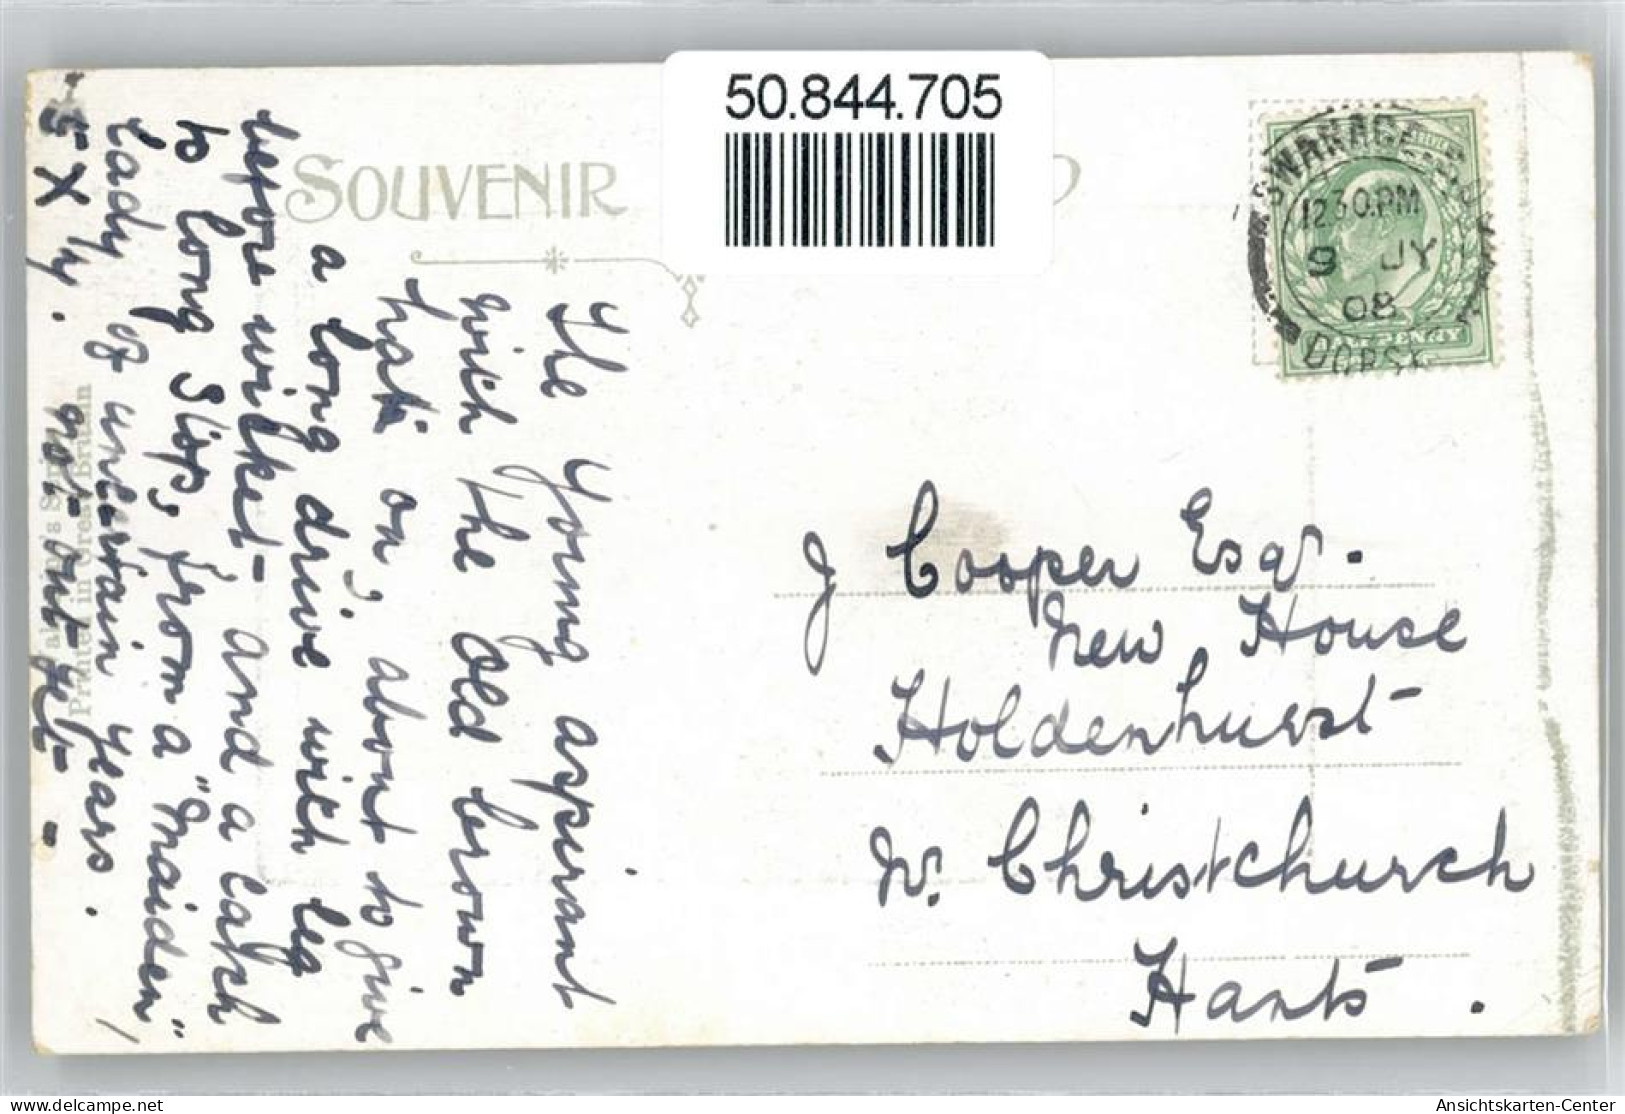 50.844.705
SOUVENIR
The Young aspirant
with the old brown
hat on, about to give
a long drive with leg
before wicket - and a catch
to long Slip, from a "Maiden"
Lady of uncertain years.
5 X hy. not out yet -
Printed in Great Britain
SWANAGE
12 30.PM
9 JY
08
DORSE
PENNY
J Cooper Esqr.
New House
Holdenhurst
Nr. Christchurch
Hants.
Ansichtskarten-Center auf Delcampe.net